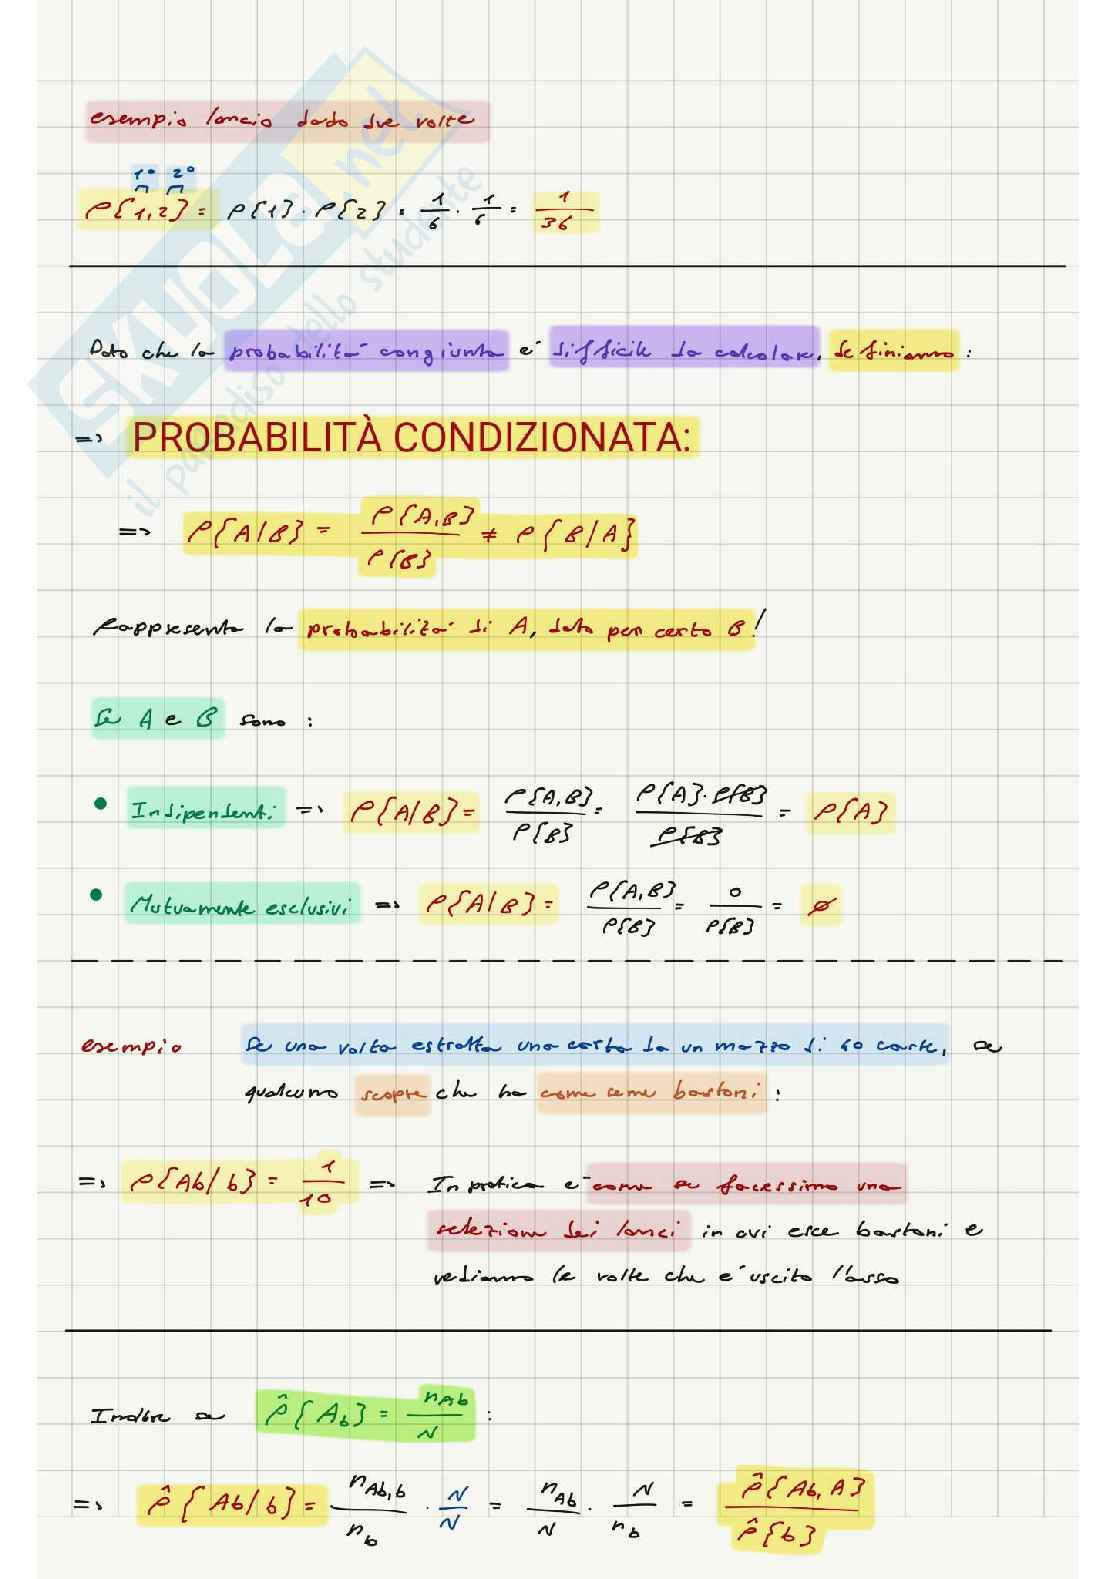 esempio lancio dado due volte
1° 2°
P{1,2} = P{1} · P{2} = 1/6 · 1/6 = 1/36
Dato che la probabilità congiunta e' difficile da calcolare, definiamo:
=> PROBABILITÀ CONDIZIONATA:
=> P{A|B} = P{A,B}/P{B} ≠ P{B|A}
Rappresenta la probabilità di A, dato per certo B!
Se A e B sono:
• Indipendenti => P{A|B} = P{A,B}/P{B} = P{A}·P{B}/P{B} = P{A}
• Mutuamente esclusivi => P{A|B} = P{A,B}/P{B} = 0/P{B} = ∅
esempio Se una volta estratta una carta da un mazzo di 40 carte, se
qualcuno scopre che ha come seme bastoni:
=> P{Ab/b} = 1/10 => In pratica e' come se facessimo una
selezione dei lanci in cui esce bastoni e
vediamo le volte che e' uscito l'asso
Inoltre se P̂{Ab} = nAb/N :
=> P̂{Ab/b} = nAb,b/nb · N/N = nAb/N · N/nb = P̂{Ab,A}/P̂{b}
SKUOLA.net
il paradiso dello studente